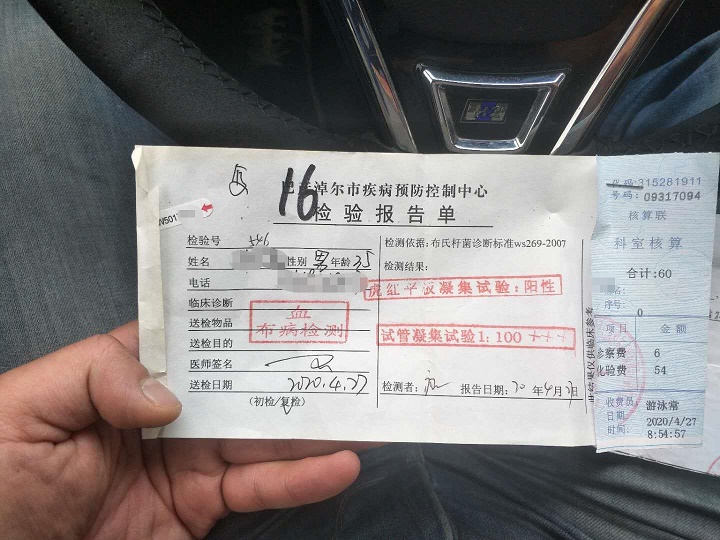 16
巴彦淖尔市疾病预防控制中心
检验报告单
检验号 546
姓名 性别 男 年龄 35
电话
临床诊断
送检物品 血
布病检测
送检目的
医师签名
送检日期 2020.4.27
(初检/复检)
检测依据:布氏杆菌诊断标准ws269-2007
检测结果:
虎红平板凝集试验:阳性
试管凝集试验1:100 +++
检测者: 报告日期:20 年4月 日
此结果仅供临床参考
代码:315281911
号码:09317094
核算联
科室核算
合计:60
序号: 0
项目 金额
诊察费 6
化验费 54
收费员: 游泳常
日期: 2020/4/27
时间: 8:54:57